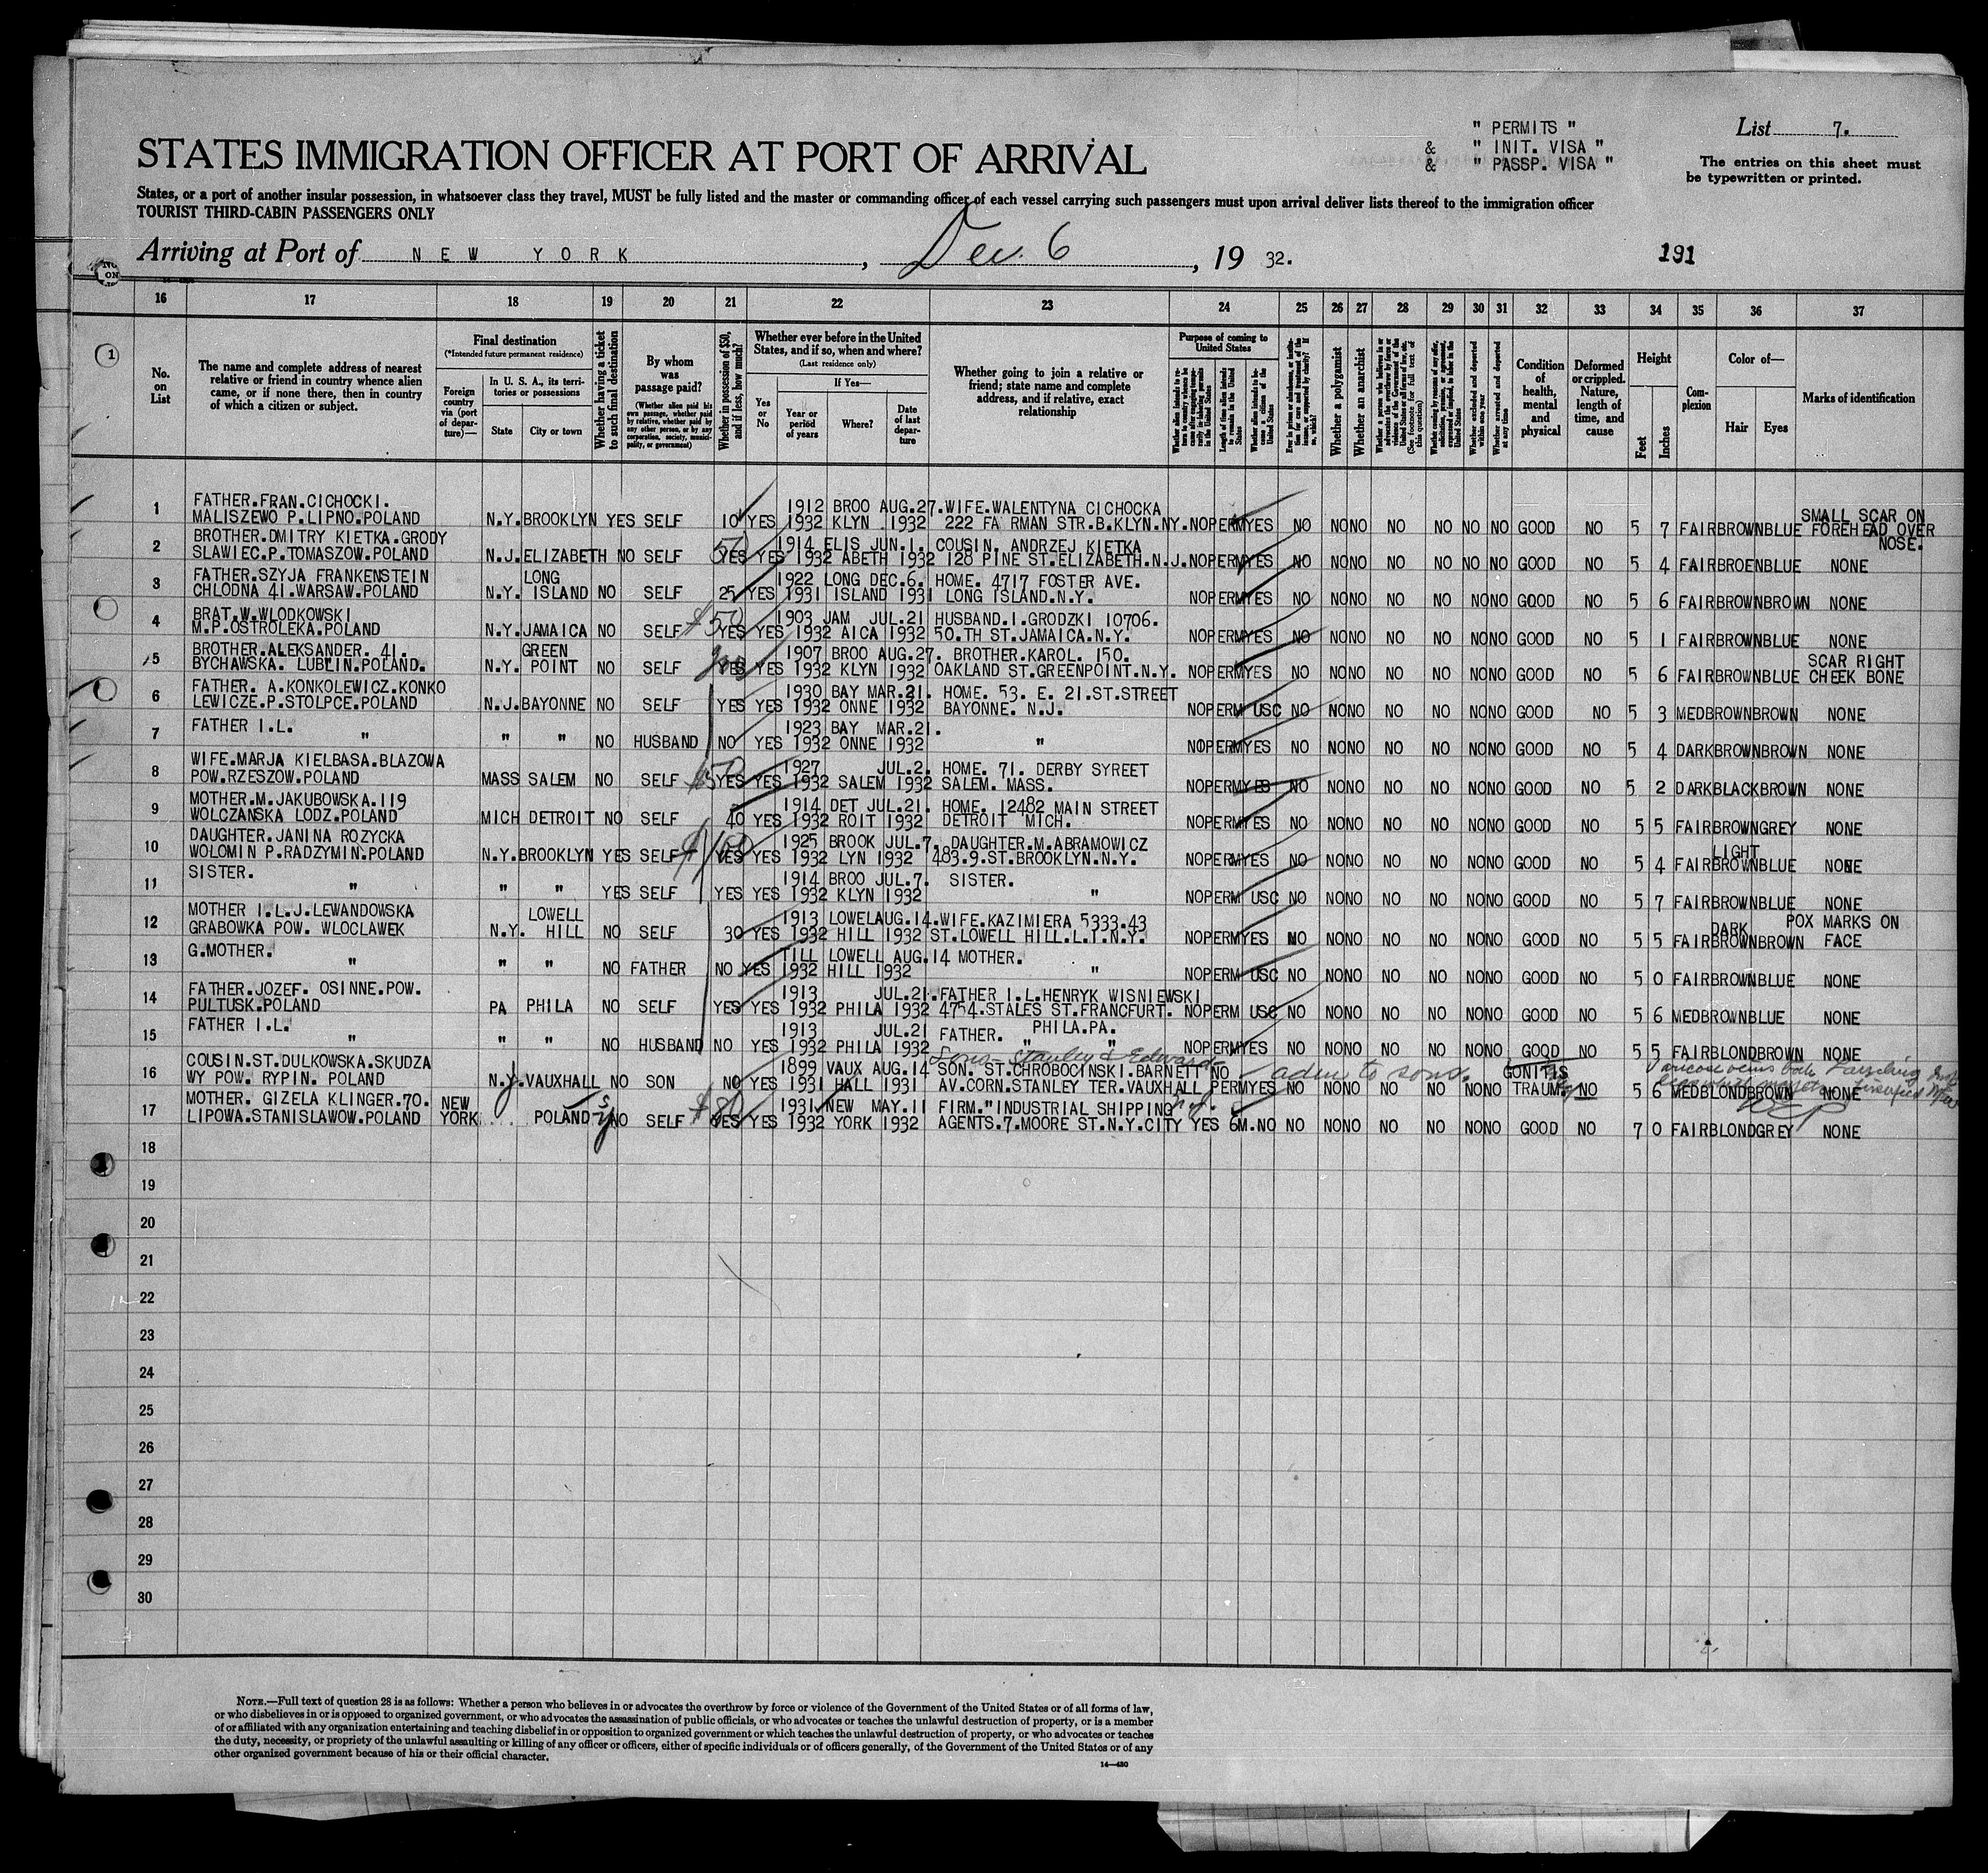 " PERMITS "
& " INIT. VISA "
& " PASSP. VISA "
List 7.
The entries on this sheet must
be typewritten or printed.
STATES IMMIGRATION OFFICER AT PORT OF ARRIVAL
States, or a port of another insular possession, in whatsoever class they travel, MUST be fully listed and the master or commanding officer of each vessel carrying such passengers must upon arrival deliver lists thereof to the immigration officer
TOURIST THIRD-CABIN PASSENGERS ONLY
Arriving at Port of NEW YORK, Dec. 6, 19 32.
191
16 17 18 19 20 21 22 23 24 25 26 27 28 29 30 31 32 33 34 35 36 37
No. on List
The name and complete address of nearest
relative or friend in country whence alien
came, or if none there, then in country
of which a citizen or subject.
Final destination
(*Intended future permanent residence)
Foreign country via (port of departure)—
In U. S. A., its territories or possessions
State City or town
Whether having a ticket to such final destination
By whom was passage paid?
(Whether alien paid his own passage, whether paid by relative, whether paid by any other person, or by any corporation, society, municipality, or government)
Whether in possession of $50, and if less, how much?
Whether ever before in the United States, and if so, when and where?
(Last residence only)
Yes or No
If Yes—
Year or period of years
Where?
Date of last departure
Whether going to join a relative or
friend; state name and complete
address, and if relative, exact
relationship
Purpose of coming to United States
Length of time alien intends to remain in the United States
Whether alien intends to become a citizen of the United States
Whether a polygamist
Whether an anarchist
Whether arrested and deported at any time
Condition of health, mental and physical
Deformed or crippled. Nature, length of time, and cause
Height
Feet Inches
Complexion
Color of—
Hair Eyes
Marks of identification
1 FATHER.FRAN.CICHOCKI. 1912 BROO AUG.27.WIFE.WALENTYNA CICHOCKA SMALL SCAR ON
MALISZEWO P.LIPNO.POLAND N.Y.BROOKLYN YES SELF 10 YES 1932 KLYN 1932 222 FA RMAN STR.B.KLYN.NY. NO PERM YES NO NO NO NO NO NO NO GOOD NO 5 7 FAIR BROWN BLUE FOREHEAD OVER
NOSE.
2 BROTHER.DMITRY KIETKA.GRODY 50 1914 ELIS JUN.1. COUSIN. ANDRZEJ KIETKA
SLAWIEC.P.TOMASZOW.POLAND N.J.ELIZABETH NO SELF YES YES 1932 ABETH 1932 128 PINE ST.ELIZABETH.N.J. NO PERM YES NO NO NO NO NO NO NO GOOD NO 5 4 FAIR BROEN BLUE NONE
3 FATHER.SZYJA FRANKENSTEIN LONG 1922 LONG DEC.6. HOME. 4717 FOSTER AVE.
CHLODNA 41.WARSAW.POLAND N.Y. ISLAND NO SELF 25 YES 1931 ISLAND 1931 LONG ISLAND.N.Y. NO PERM YES NO NO NO NO NO NO NO GOOD NO 5 6 FAIR BROWN BROWN NONE
4 BRAT.W.WLODKOWSKI $50 1903 JAM JUL.21 HUSBAND.I.GRODZKI 10706.
M.P.OSTROLEKA.POLAND N.Y.JAMAICA NO SELF YES YES 1932 AICA 1932 50.TH ST.JAMAICA.N.Y. NO PERM YES NO NO NO NO NO NO NO GOOD NO 5 1 FAIR BROWN BLUE NONE
5 BROTHER.ALEKSANDER. 41. GREEN 1907 BROO AUG.27. BROTHER.KAROL. 150. SCAR RIGHT
BYCHAWSKA. LUBLIN.POLAND. N.Y. POINT NO SELF YES YES 1932 KLYN 1932 OAKLAND ST.GREENPOINT.N.Y. NO PERM YES NO NO NO NO NO NO NO GOOD NO 5 6 FAIR BROWN BLUE CHEEK BONE
6 FATHER. A.KONKOLEWICZ.KONKO 1930 BAY MAR.21. HOME. 53. E. 21.ST.STREET
LEWICZE.P.STOLPCE.POLAND N.J.BAYONNE NO SELF YES YES 1932 ONNE 1932 BAYONNE. N.J. NO PERM USC NO NO NO NO NO NO NO GOOD NO 5 3 MED BROWN BROWN NONE
7 FATHER I.L. 1923 BAY MAR.21.
" " " NO HUSBAND NO YES 1932 ONNE 1932 " NO PERM YES NO NO NO NO NO NO NO GOOD NO 5 4 DARK BROWN BROWN NONE
8 WIFE.MARJA KIELBASA.BLAZOWA $50 1927 JUL.2. HOME. 71. DERBY SYREET
POW.RZESZOW.POLAND MASS SALEM NO SELF YES YES 1932 SALEM 1932 SALEM. MASS. NO PERM YES NO NO NO NO NO NO NO GOOD NO 5 2 DARK BLACK BROWN NONE
9 MOTHER.M.JAKUBOWSKA.119 1914 DET JUL.21. HOME. 12482 MAIN STREET
WOLCZANSKA LODZ.POLAND MICH DETROIT NO SELF 40 YES 1932 ROIT 1932 DETROIT MICH. NO PERM YES NO NO NO NO NO NO NO GOOD NO 5 5 FAIR BROWN GREY NONE
10 DAUGHTER.JANINA ROZYCKA 1925 BROOK JUL.7. DAUGHTER.M.ABRAMOWICZ LIGHT
WOLOMIN P.RADZYMIN.POLAND N.Y.BROOKLYN YES SELF YES YES 1932 LYN 1932 483.9.ST.BROOKLYN.N.Y. NO PERM YES NO NO NO NO NO NO NO GOOD NO 5 4 FAIR BROWN BLUE NONE
11 SISTER. 1914 BROO JUL.7. SISTER.
" " " YES SELF YES YES 1932 KLYN 1932 " NO PERM USC NO NO NO NO NO NO NO GOOD NO 5 7 FAIR BROWN BLUE NONE
12 MOTHER I.L.J.LEWANDOWSKA LOWELL 1913 LOWEL AUG.14.WIFE.KAZIMIERA 5333.43 DARK POX MARKS ON
GRABOWKA POW. WLOCLAWEK N.Y. HILL NO SELF 30 YES 1932 HILL 1932 ST.LOWELL HILL.L.I.N.Y. NO PERM YES NO NO NO NO NO NO NO GOOD NO 5 5 FAIR BROWN BROWN FACE
13 G.MOTHER. TILL LOWELL AUG.14 MOTHER.
" " " NO FATHER NO YES 1932 HILL 1932 " NO PERM USC NO NO NO NO NO NO NO GOOD NO 5 0 FAIR BROWN BLUE NONE
14 FATHER.JOZEF. OSINNE.POW. 1913 JUL.21.FATHER I.L.HENRYK WISNIEWSKI
PULTUSK.POLAND PA PHILA NO SELF YES YES 1932 PHILA 1932 4754.STALES ST.FRANCFURT. NO PERM USC NO NO NO NO NO NO NO GOOD NO 5 6 MED BROWN BLUE NONE
15 FATHER I.L. 1913 JUL.21 FATHER. PHILA.PA.
" " " NO HUSBAND NO YES 1932 PHILA 1932 " " NO PERM YES NO NO NO NO NO NO NO GOOD NO 5 5 FAIR BLOND BROWN NONE
Sons - Stanley & Edward
16 COUSIN.ST.DULKOWSKA.SKUDZA 1899 VAUX AUG.14 SON. ST.CHROBOCINSKI.BARNETT NO adm to sons. GONITIS
WY POW. RYPIN. POLAND N.J.VAUXHALL NO SON NO YES 1931 HALL 1931 AV.CORN.STANLEY TER.VAUXHALL PERM YES NO NO NO NO NO NO NO TRAUM. NO 5 6 MED BLOND BROWN NONE
17 MOTHER. GIZELA KLINGER.70. NEW $80 1931 NEW MAY.11 FIRM."INDUSTRIAL SHIPPING
LIPOWA.STANISLAWOW.POLAND YORK POLAND NO SELF YES YES 1932 YORK 1932 AGENTS.7.MOORE ST.N.Y.CITY YES 6M. NO NO NO NO NO NO NO NO GOOD NO 7 0 FAIR BLOND GREY NONE
18
19
20
21
22
23
24
25
26
27
28
29
30
NOTE.—Full text of question 28 is as follows: Whether a person who believes in or advocates the overthrow by force or violence of the Government of the United States or of all forms of law,
or who disbelieves in or is opposed to organized government, or who advocates the assassination of public officials, or who advocates or teaches the unlawful destruction of property, or is a member
of or affiliated with any organization entertaining and teaching disbelief in or opposition to organized government or which teaches the unlawful destruction of property, or who advocates or teaches
the duty, necessity, or propriety of the unlawful assaulting or killing of any officer or officers, either of specific individuals or of officers generally, of the Government of the United States or of any
other organized government because of his or their official character.
14—430